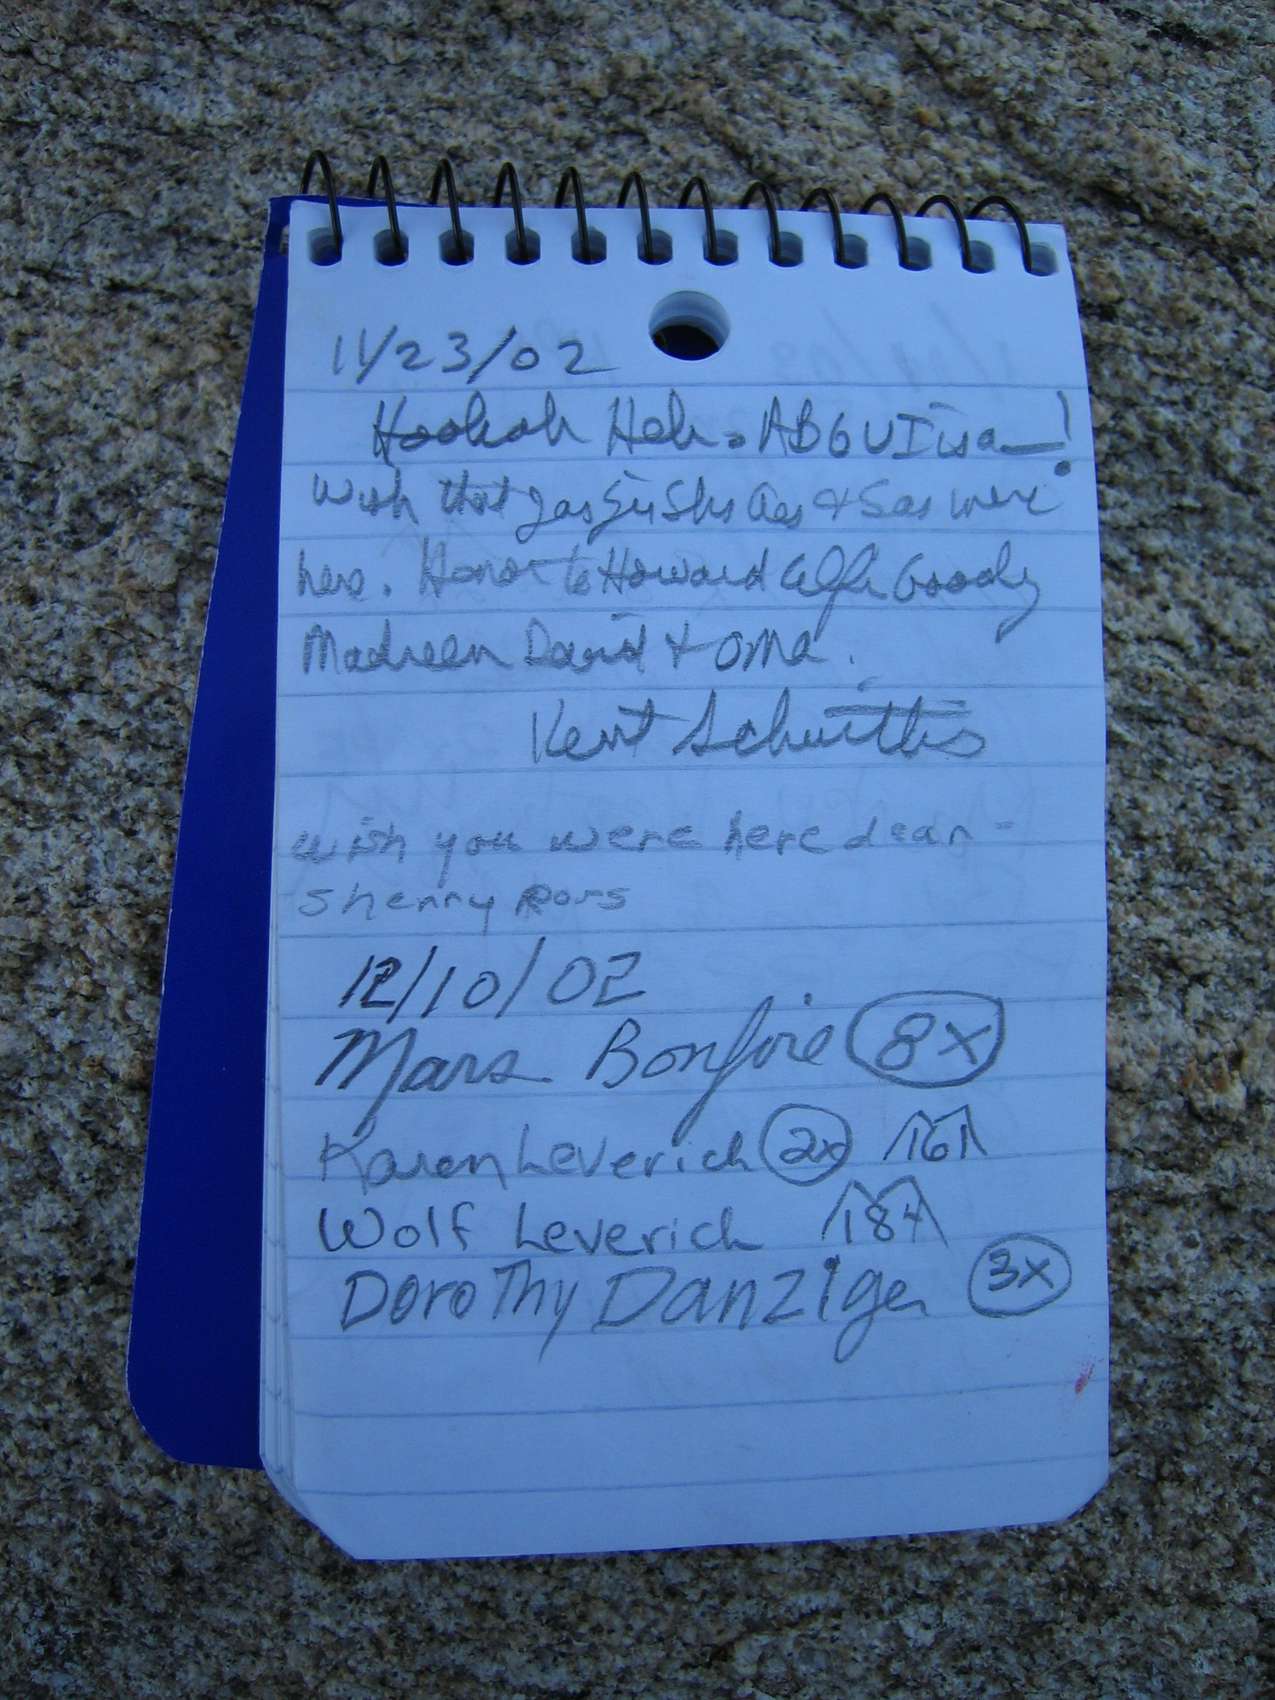 11/23/02
Hookah Heh.
With that & Sas were
here. Honor to Howard Alfr Goody
Madreen David & Oma.
Kent Schwitkis
wish you were here dear -
sherry Ross
12/10/02
Mars Bonfire 8x
Karen Leverich 2x 161
Wolf Leverich 184
Dorothy Danziger 3x